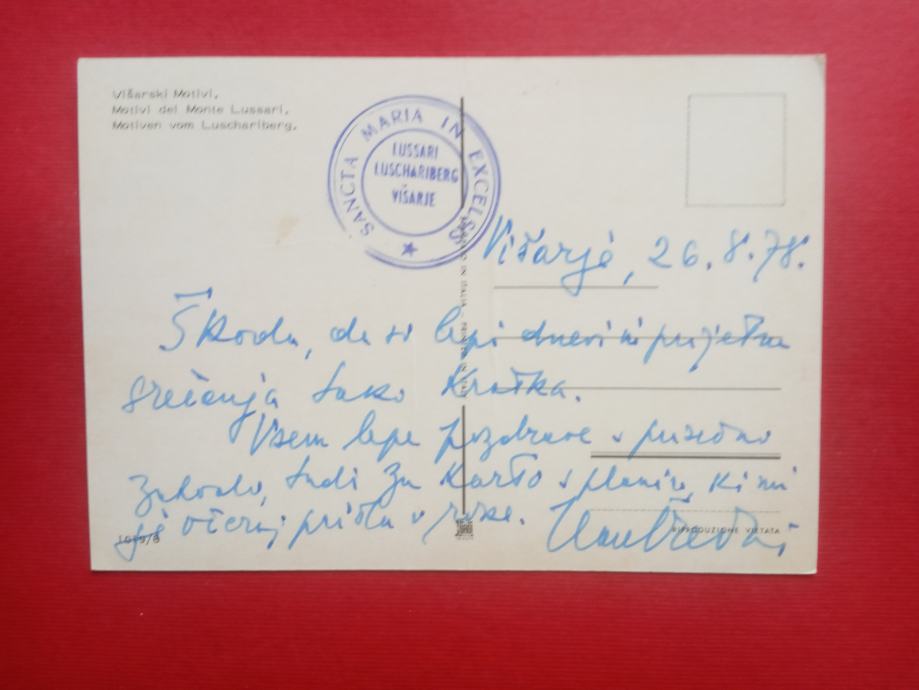 Višarski Motivi.
Motivi del Monte Lussari.
Motiven vom Luschariberg.
SANCTA MARIA IN EXCELSIS
LUSSARI
LUSCHARIBERG
VIŠARJE
Višarje, 26.8.78.
Škoda, da so lepi dnevi in prijetna
srečanja tako kratka.
Vsem lepe pozdrave s prisrčno
zahvalo, tudi za karto s planin, ki mi
je včeraj prišla v roke.
RIPRODUZIONE VIETATA